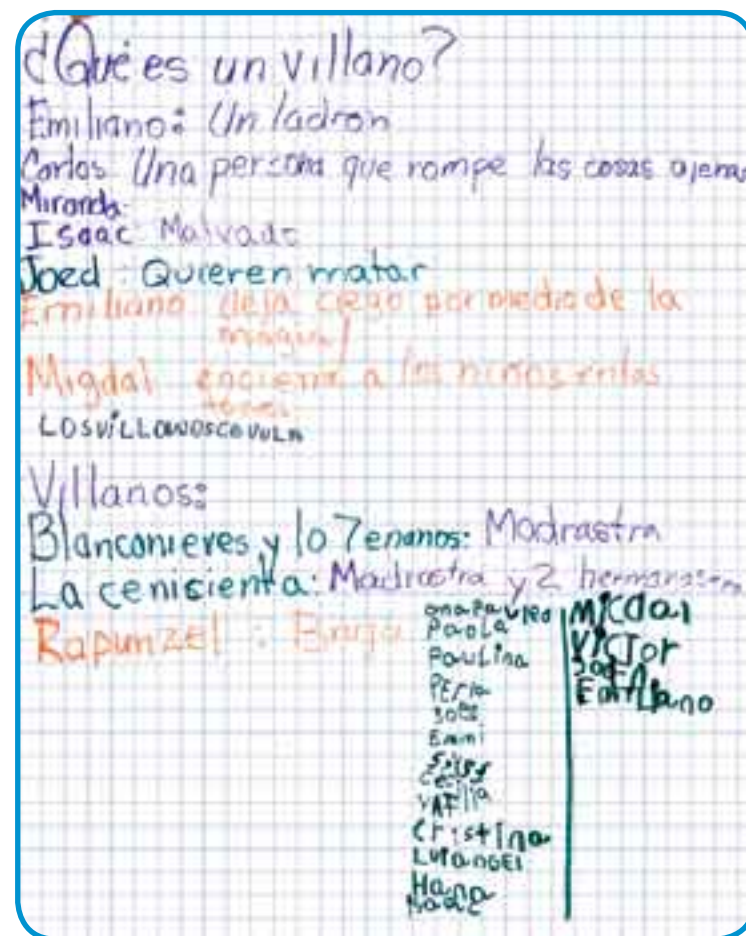 ¿Qué es un villano?
Emiliano: Un ladron
Carlos: Una persona que rompe las cosas ajenas
Miranda:
Isaac: Malvado
Joed: Quieren matar
Emiliano: deja ciego por medio de la
magia
Migdal: encierra a los niños en las
Villanos:
Blanconieves y lo 7 enanos: Madrastra
La cenicienta: Madrastra y 2 hermanastra
Rapunzel: Bruja
Paola
Paulina
Perla
Emmi
Cristina
Hana
Micdal
Victor
Emiliano